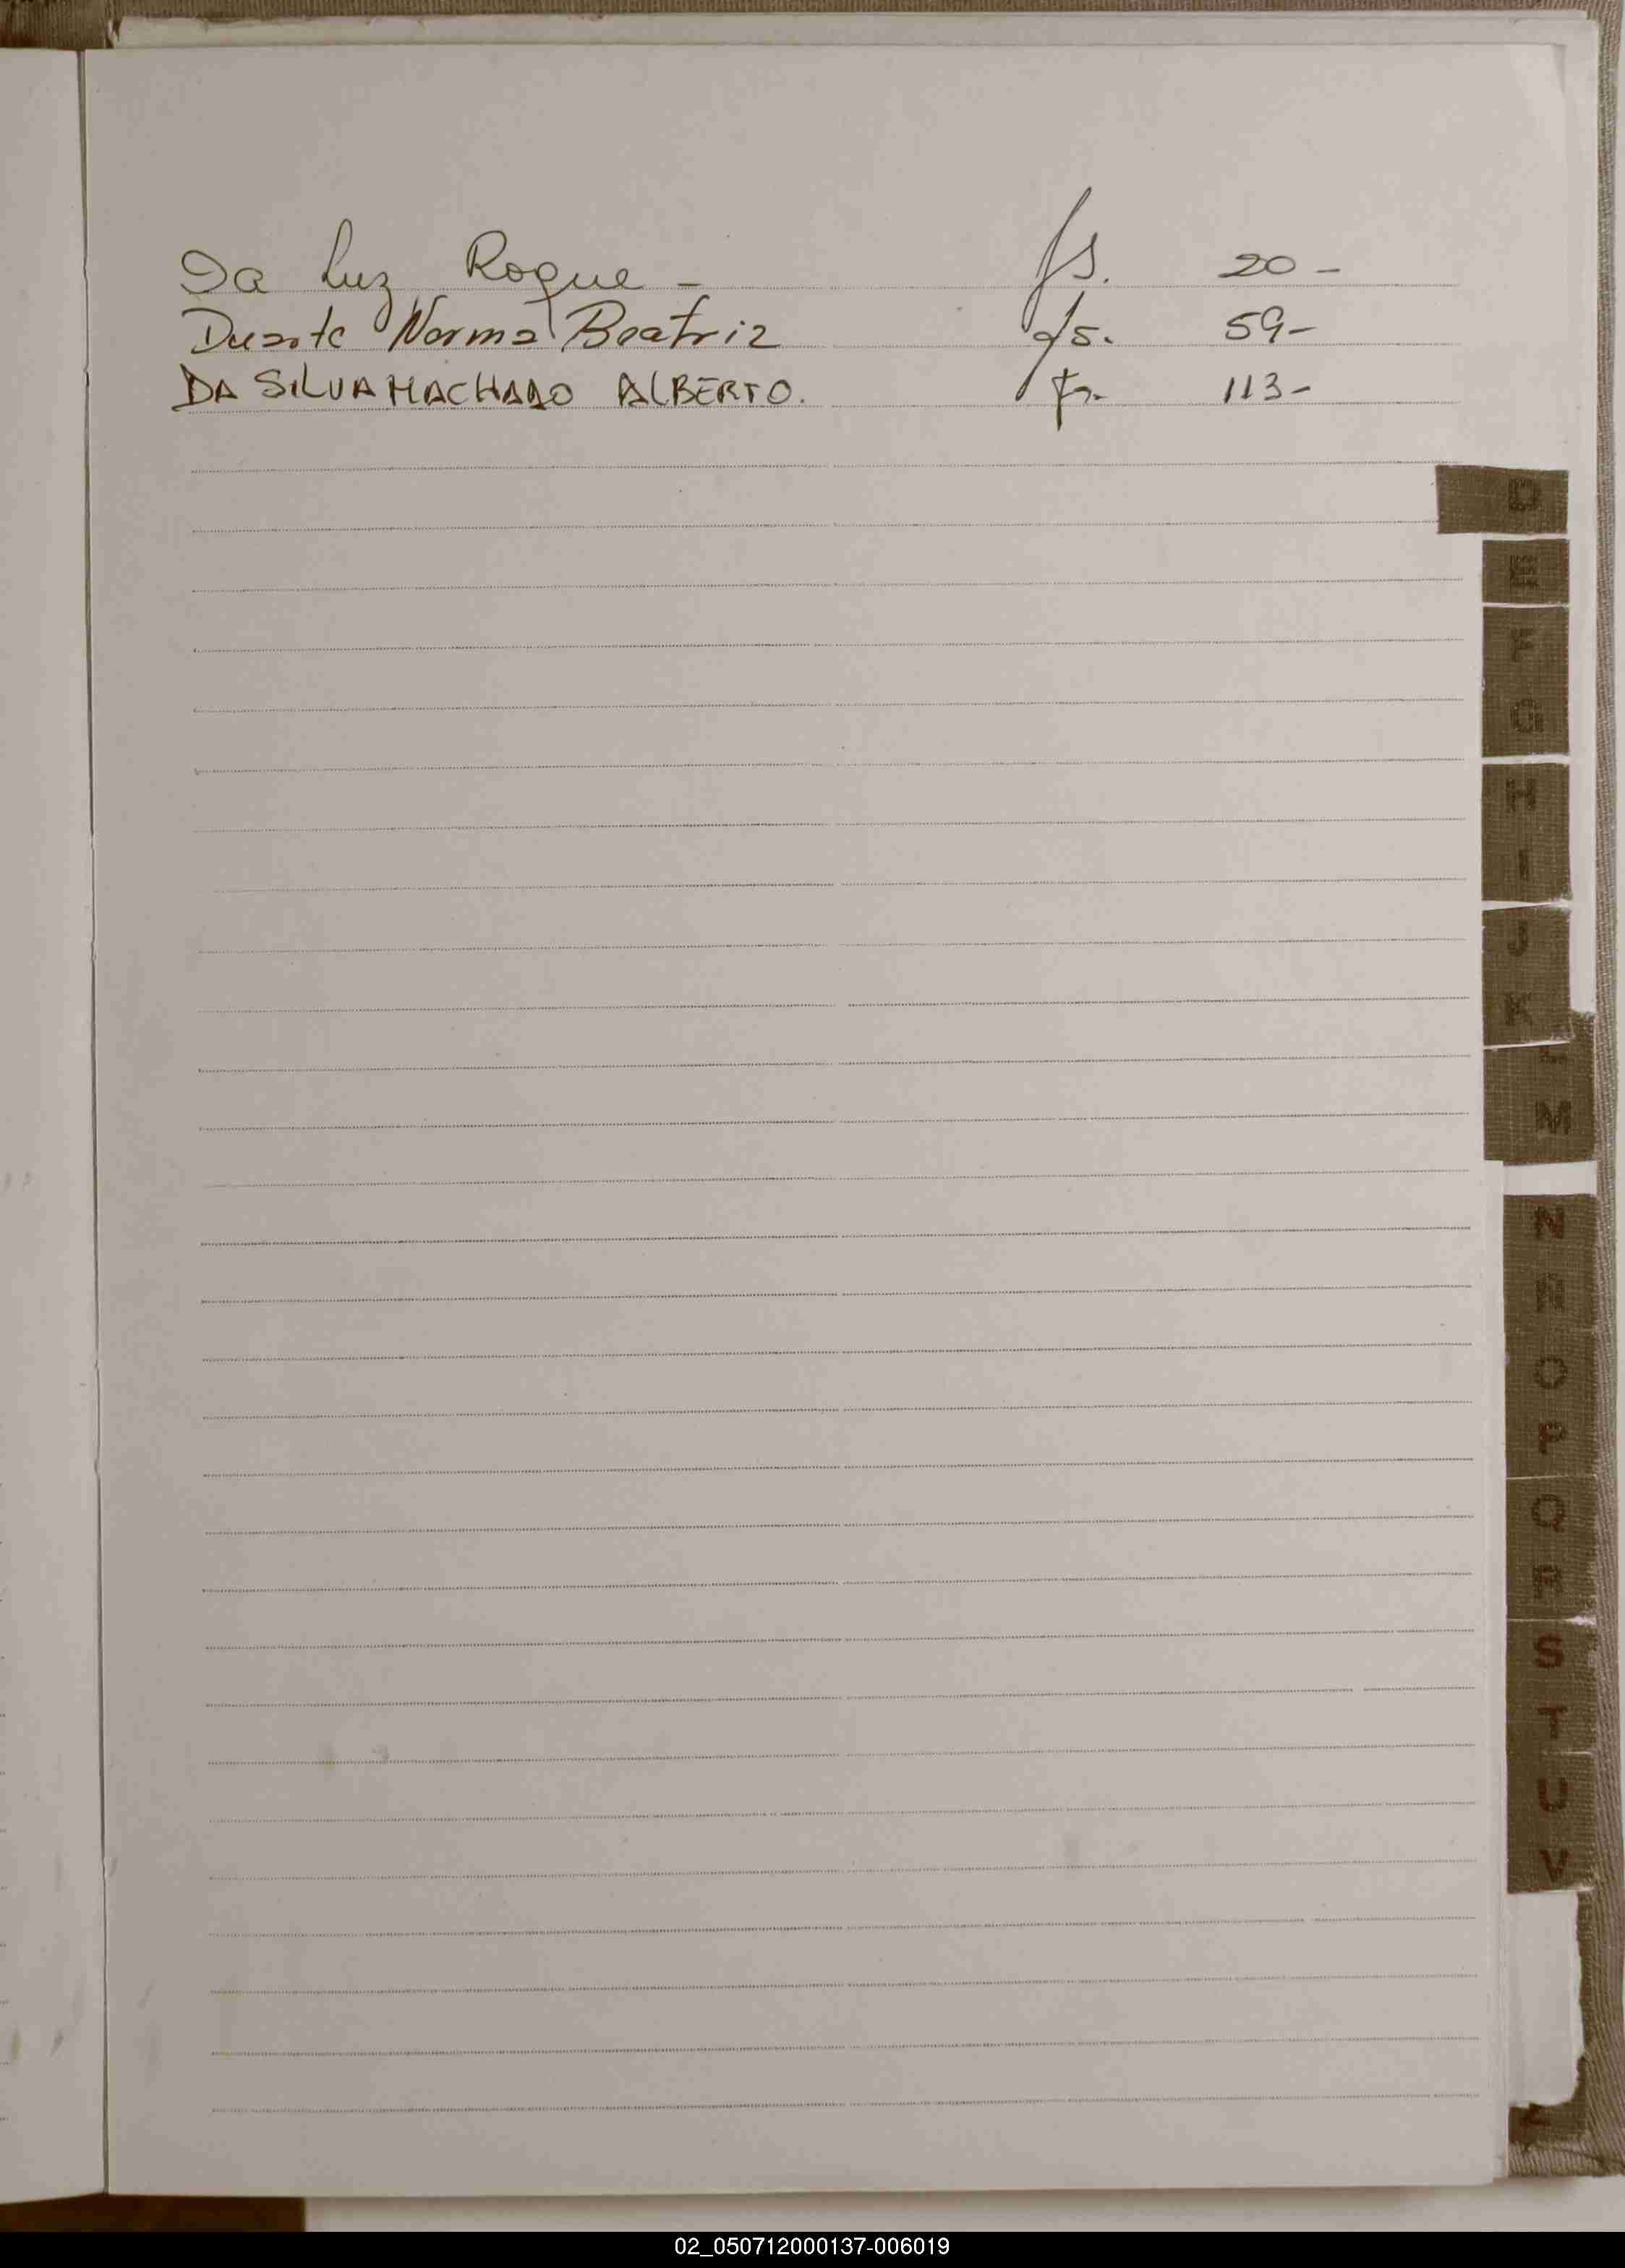 Da Luz Roque - fs. 20 -
Duarte Norma Beatriz fs. 59 -
DA SILVA MACHADO ALBERTO. fs. 113 -
D
E
F
G
H
I
J
K
L
M
N
Ñ
O
P
Q
R
S
T
U
V
02_050712000137-006019